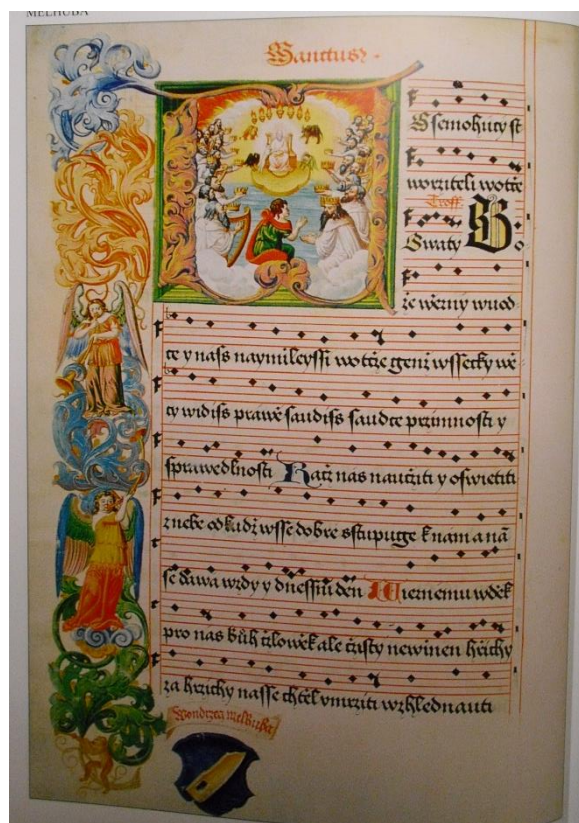 MELHUBA
Sanctus
Wssemohucy st
worziteli wotcze
Troff.
Swaty Bo
że wěrny wuod
ce y naſs naymileyſſi wotcze genż wſſecky wě
cy widiſs prawě ſaudiſs ſaudce przimnoſti y
ſprawedlnoſti Racż nás naucżiti y oſwietiti
z nebe odkudż wſſe dobre sſtupuge k nám a ná
ſe dáwa wżdy y dneſſni den Wiernému wdėk
pro nas bůh cżlowěk ale cżiſty newinen hřichy
za hrzichy naſſe chtěl vmrziti wzhlednauti
Wondrzeg melhuba